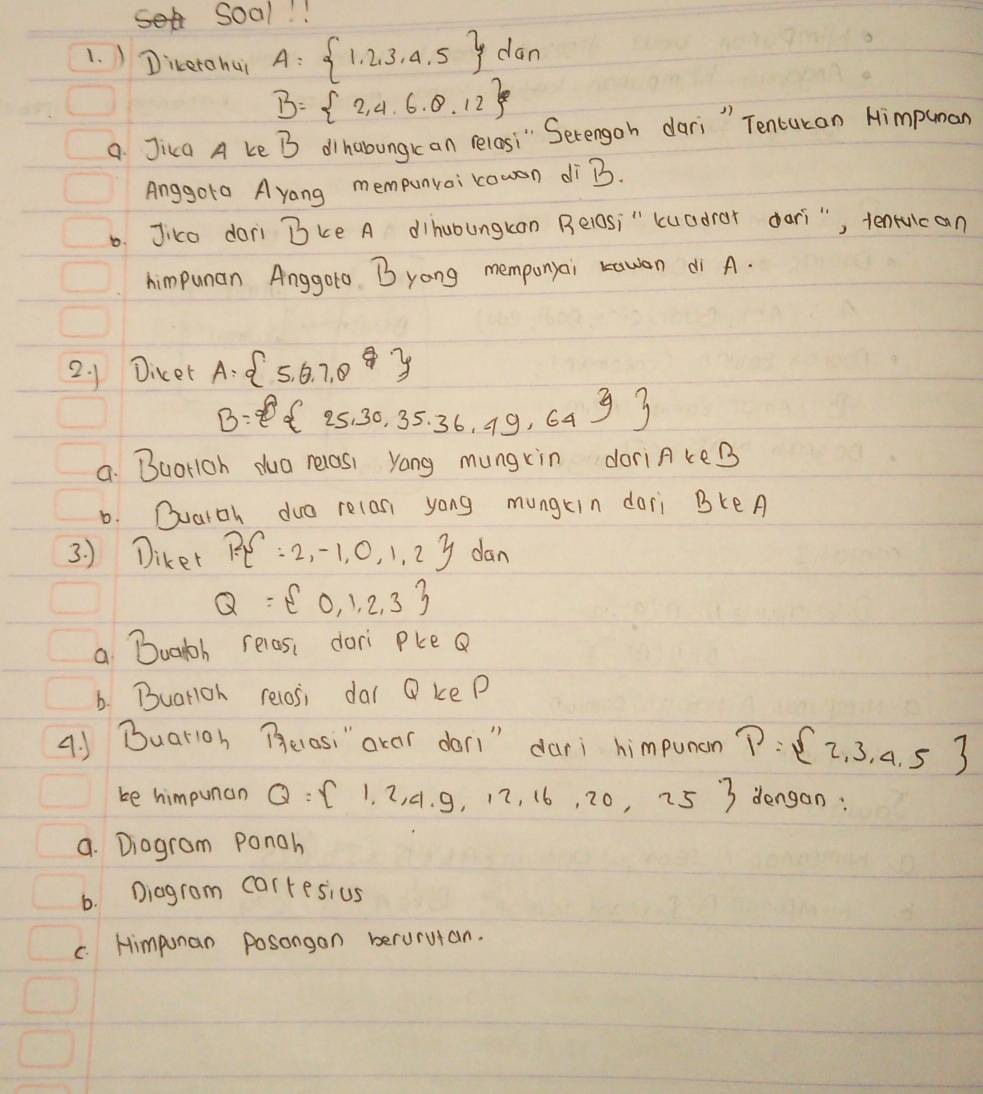 Soal !!
1.) Diketahui A = { 1,2,3,4,5 } dan
B = { 2,4.6.8.12 }
a. Jika A ke B dihubungkan relasi "Setengah dari" Tentukan Himpunan
Anggota A yang mempunyai kawan di B.
b. Jika dari B ke A dihubungkan Relasi "kuadrat dari", tentukan
himpunan Anggota B yang mempunyai kawan di A.
2.) Diket A = { 5,6,7,8 }
B = { 25,30,35.36,49,64 }
a. Buatlah dua relasi yang mungkin dari A ke B
b. Buatlah dua relasi yang mungkin dari B ke A
3.) Diket P{ = 2,-1,0,1,2 } dan
Q = { 0,1,2,3 }
a. Buatlah relasi dari P ke Q
b. Buatlah relasi dar Q ke P
4.) Buatlah Relasi "akar dari" dari himpunan P = { 2,3,4,5 }
ke himpunan Q = { 1,2,4.9,12,16,20,25 } dengan :
a. Diagram Panah
b. Diagram cartesius
c. Himpunan Pasangan berurutan.